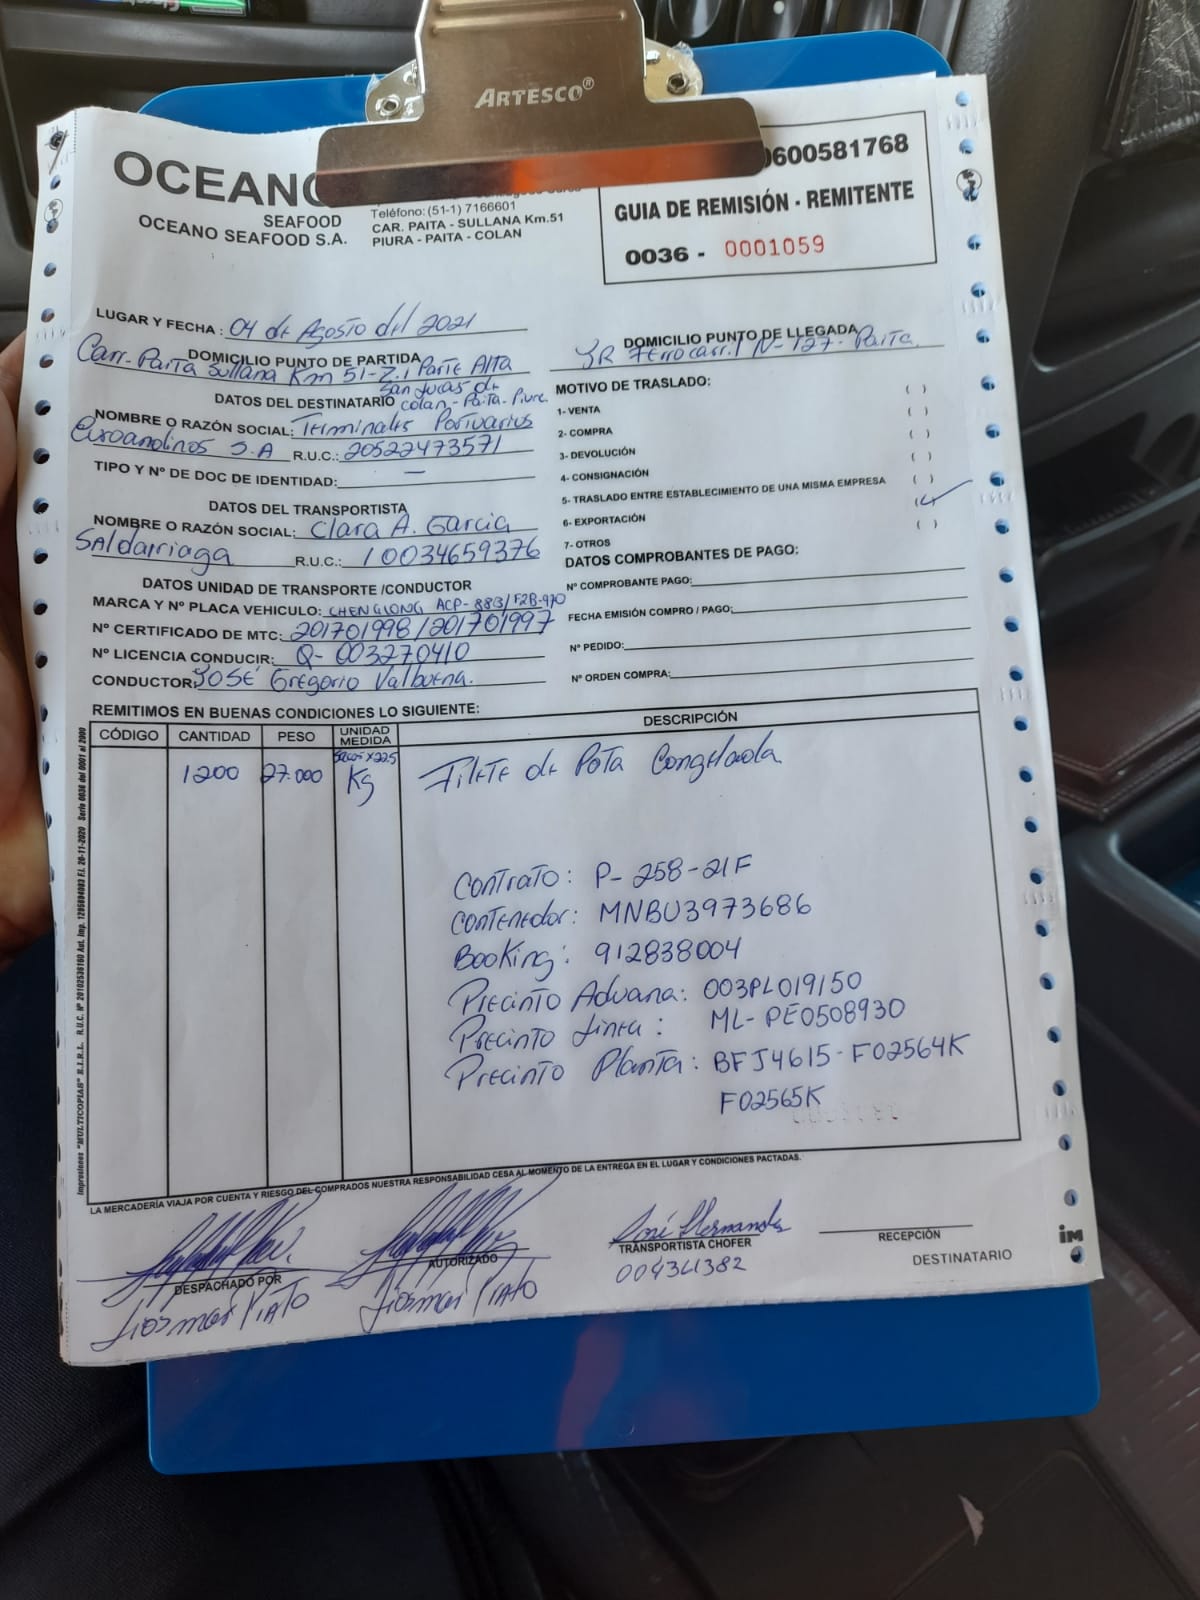 ARTESCO®
OCEANO
SEAFOOD
OCEANO SEAFOOD S.A.
Teléfono: (51-1) 7166601
CAR. PAITA - SULLANA Km.51
PIURA - PAITA - COLAN
0600581768
GUIA DE REMISIÓN - REMITENTE
0036 - 0001059
LUGAR Y FECHA : 04 de Agosto del 2021
DOMICILIO PUNTO DE PARTIDA
Carr. Paita Sullana Km 51-Z.I Parte Alta
San Lucas de
Colan - Paita - Piura
DOMICILIO PUNTO DE LLEGADA
JR Ferrocarril N-127- Paita
DATOS DEL DESTINATARIO
NOMBRE O RAZÓN SOCIAL: Terminales Portuarios
Euroandinos S.A R.U.C.: 20522473571
TIPO Y Nº DE DOC DE IDENTIDAD: —
DATOS DEL TRANSPORTISTA
NOMBRE O RAZÓN SOCIAL: Clara A. Garcia
Saldarriaga R.U.C.: 10034659376
DATOS UNIDAD DE TRANSPORTE /CONDUCTOR
MARCA Y Nº PLACA VEHICULO: CHENGLONG ACP-883/F2B-970
Nº CERTIFICADO DE MTC: 201701998/201701997
Nº LICENCIA CONDUCIR: Q- 003270410
CONDUCTOR: JOSÉ Gregorio Valbuena.
MOTIVO DE TRASLADO:
1- VENTA ( )
2- COMPRA ( )
3- DEVOLUCIÓN ( )
4- CONSIGNACIÓN ( )
5- TRASLADO ENTRE ESTABLECIMIENTO DE UNA MISMA EMPRESA ( )
6- EXPORTACIÓN (✓)
7- OTROS ( )
DATOS COMPROBANTES DE PAGO:
Nº COMPROBANTE PAGO:
FECHA EMISIÓN COMPRO / PAGO:
Nº PEDIDO:
Nº ORDEN COMPRA:
REMITIMOS EN BUENAS CONDICIONES LO SIGUIENTE:
CÓDIGO CANTIDAD PESO UNIDAD MEDIDA DESCRIPCIÓN
1200 27.000 Kg Filete de Pota Congelada
Contrato: P- 258-21F
Contenedor: MNBU3973686
Booking: 912838004
Precinto Aduana: 003PL019150
Precinto Linea: ML- PE0508930
Precinto Planta: BFJ4615- F02564K
F02565K
Impresiones "MULTICOPIAS" E.I.R.L. R.U.C. Nº 20102536160 Aut. Imp. 1295694093 F.I. 20-11-2020 Serie 0036 del 0001 al 2000
LA MERCADERÍA VIAJA POR CUENTA Y RIESGO DEL COMPRADOS NUESTRA RESPONSABILIDAD CESA AL MOMENTO DE LA ENTREGA EN EL LUGAR Y CONDICIONES PACTADAS.
DESPACHADO POR
AUTORIZADO
José Hernandez
TRANSPORTISTA CHOFER
004341382
RECEPCIÓN
DESTINATARIO
im